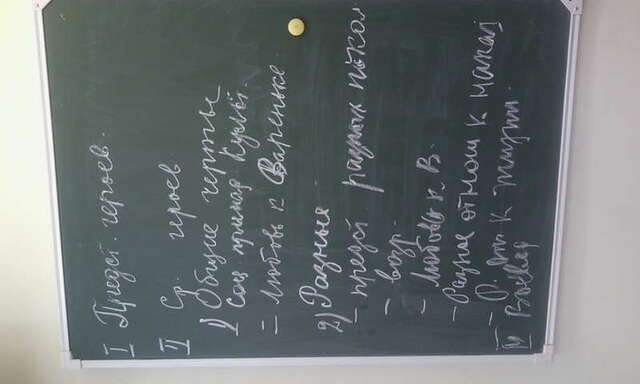 I Предст. героев.
II Ср. героев
1) Общие черты
Соц
- любовь к Вареньке.
2) Разные
- предст разных покол
- возр.
- Любовь к В.
- Разное отнош к
- О. к жизни.